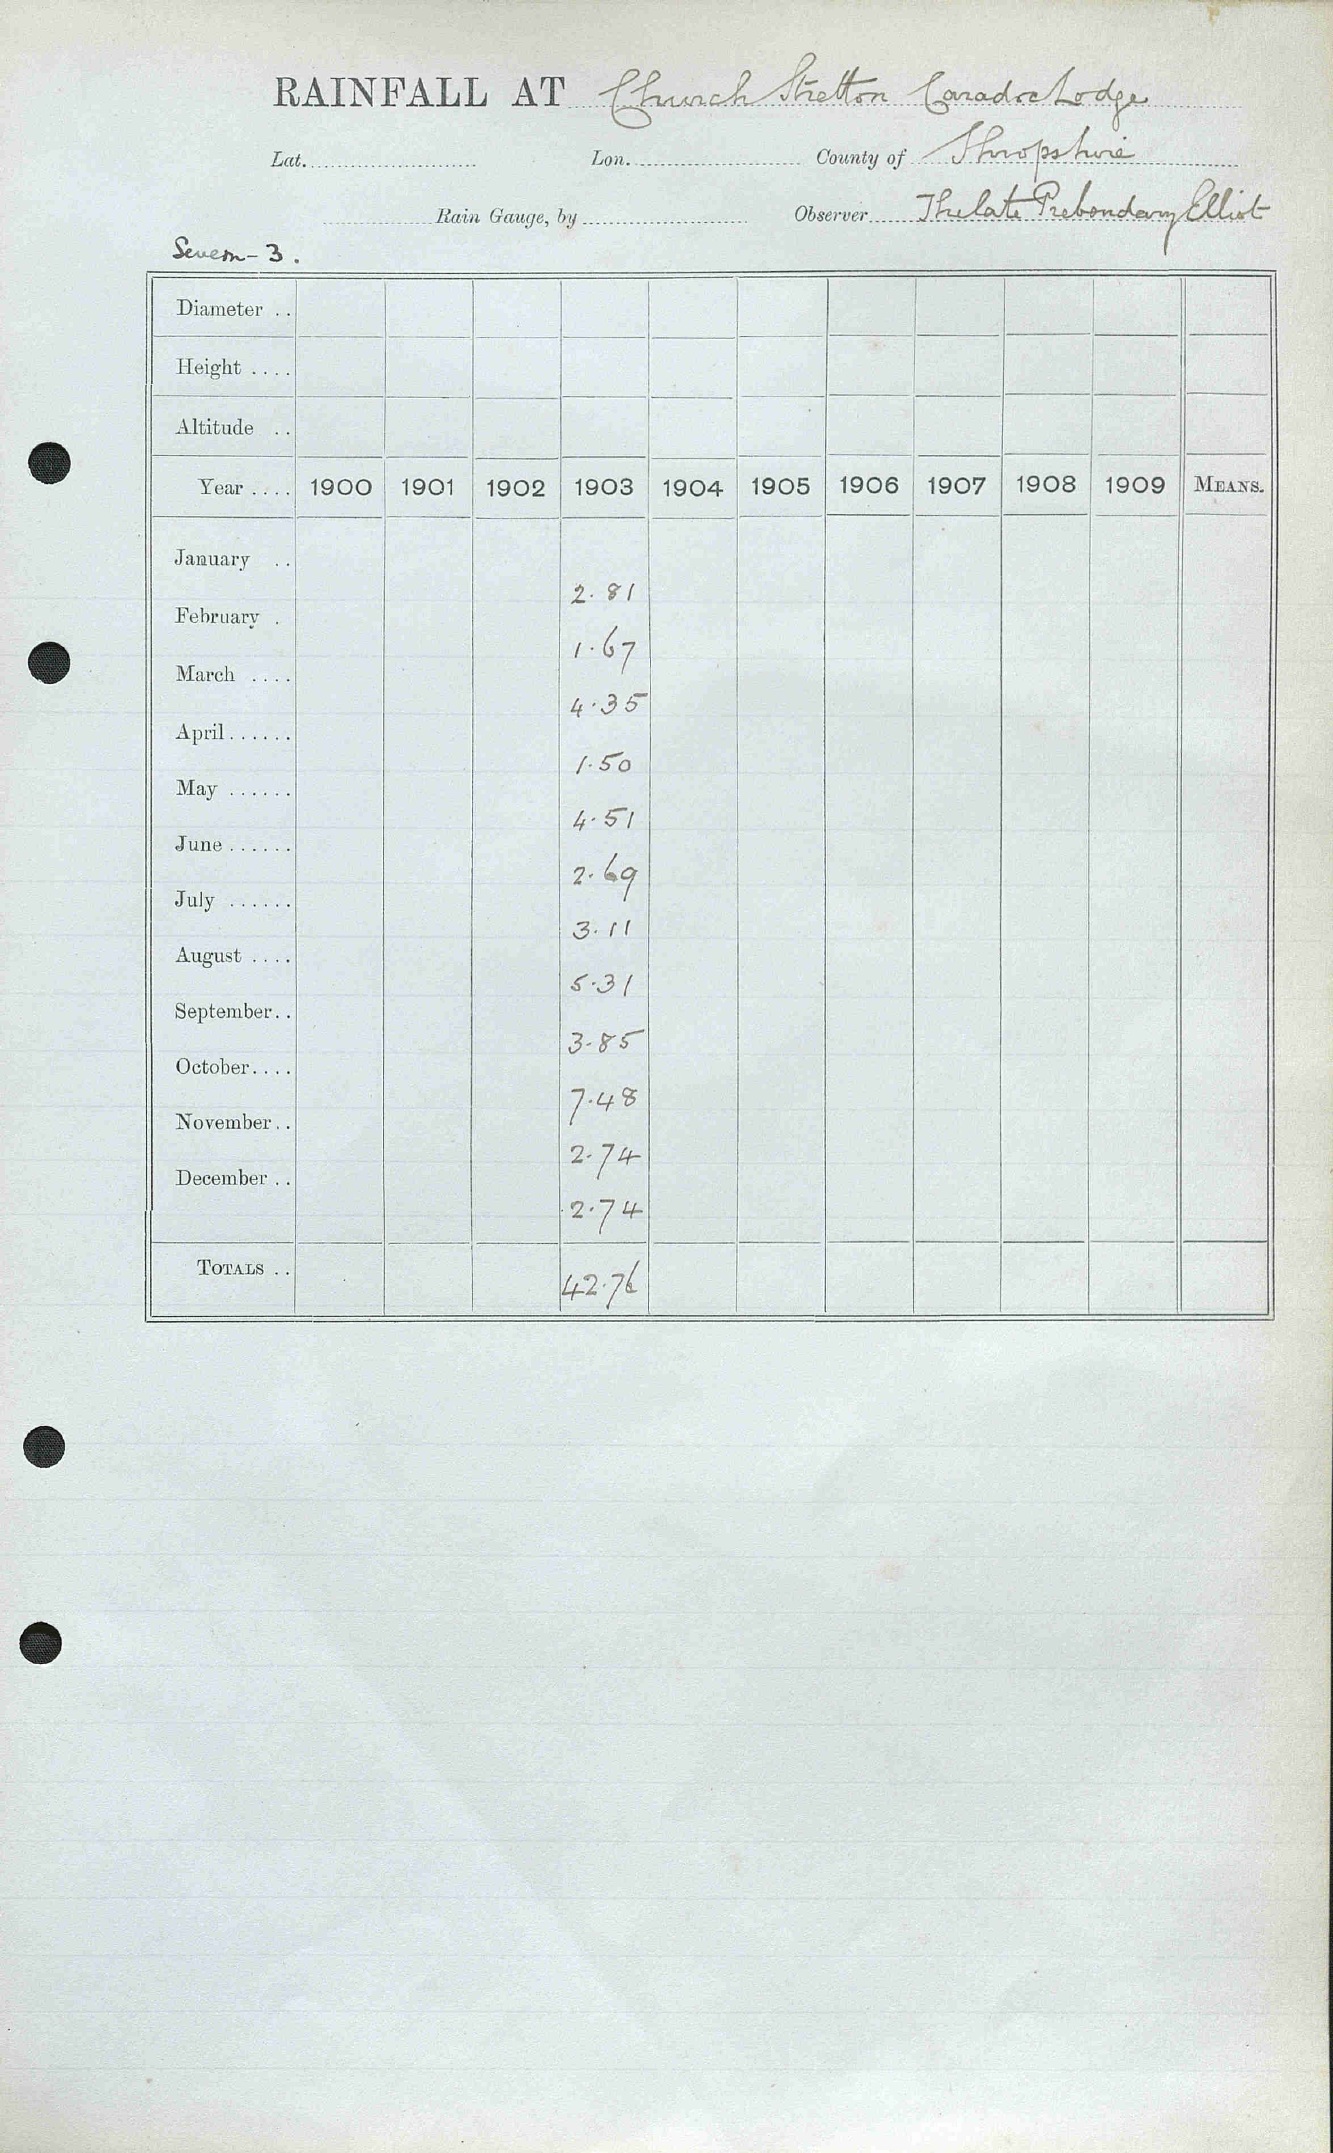 RAINFALL AT Church Stretton Caradoc Lodge
Lat. Lon. County of Shropshire
Rain Gauge, by Observer The late Prebendary Elliot
Severn - 3.
Diameter ..
Height ....
Altitude ..
Year .... 1900 1901 1902 1903 1904 1905 1906 1907 1908 1909 MEANS.
January ..
2.81
February .
1.67
March ....
4.35
April ......
1.50
May ......
4.51
June ......
2.69
July ......
3.11
August ....
5.31
September..
3.85
October....
7.48
November..
2.74
December ..
2.74
TOTALS ..
42.76